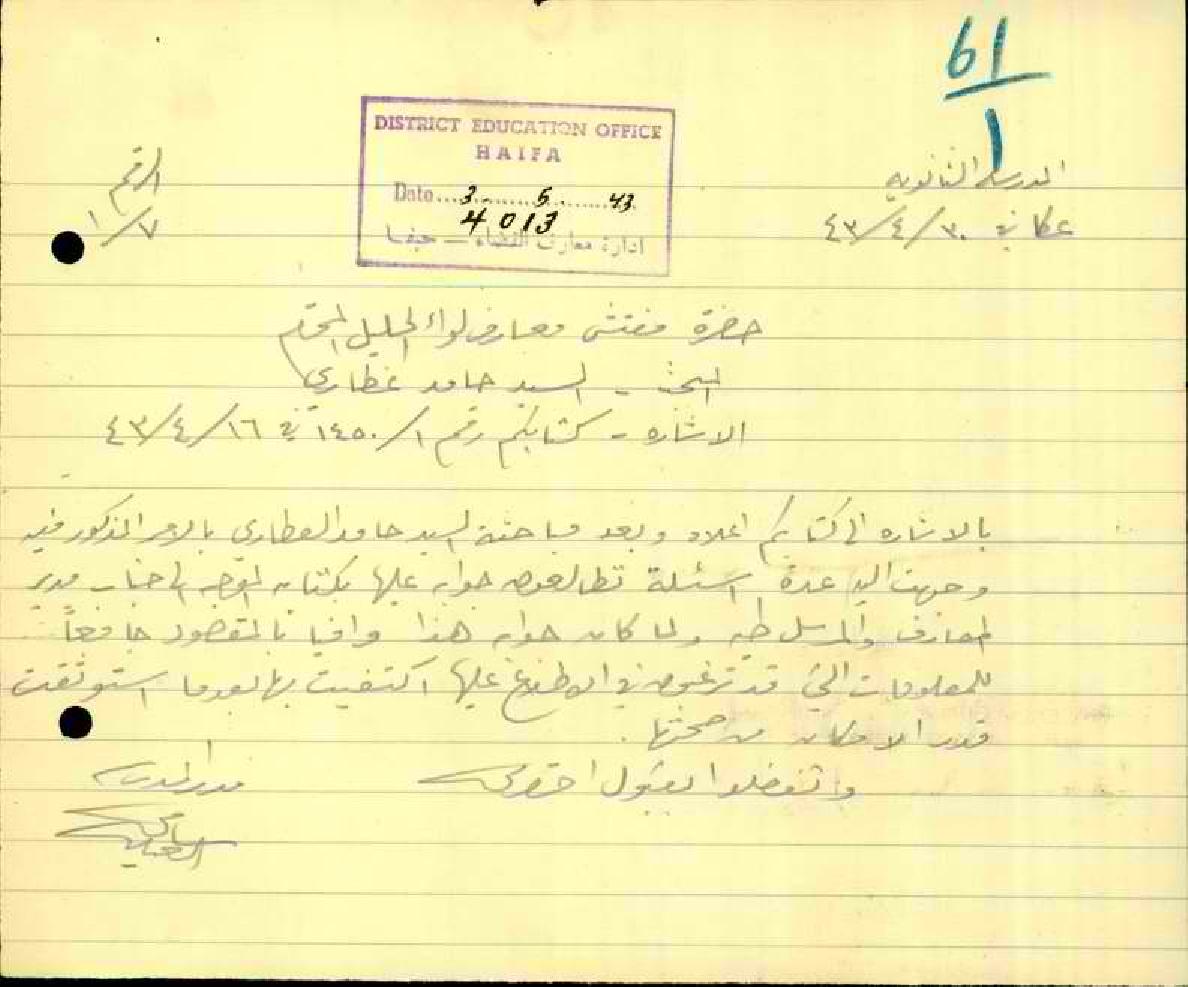 61
1
DISTRICT EDUCATION OFFICE
HAIFA
Date...3.......5.......43
4013
ادارة معارف القضاء — حيفا
المدرسة الثانويه
عكا في ٣٠/٤/٤٣
الرقم
١/٧
حضرة مفتش معارف لواء الجليل المحترم
البحث - السيد حامد عطاري
الاشاره - كتابكم رقم ١/١٤٥٠ في ١٦/٤/٤٣
بالاشاره الى كتابكم اعلاه وبعد مباحثة السيد حامد العطاري بالامر المذكور فيه
وجهت اليه عدة اسئلة تطالعون جوابه عليها بكتابه الموجه الى جناب مدير
المعارف والمرسل طيه ولما كان جوابه هذا وافيا بالمقصود جامعاً
للمعلومات التي قد ترغبون في الاطلاع عليها اكتفيت بها بعدما استوثقت
قدر الامكان من صحتها.
وتفضلوا بقبول احترامي
مدير المدرسة